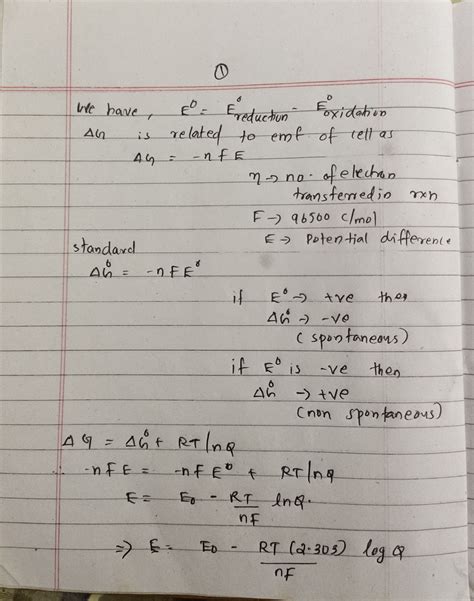 ①
We have, E⁰ = E⁰reduction - E⁰oxidation
ΔG is related to emf of cell as
ΔG = -nfE
n → no. of electron
transferred in rxn
F → 96500 C/mol
E → Potential difference
standard
ΔG⁰ = -nFE⁰
if E⁰ → +ve then
ΔG⁰ → -ve
(spontaneous)
if E⁰ is -ve then
ΔG⁰ → +ve
(non spontaneous)
ΔG = ΔG⁰ + RT lnQ
∴ -nFE = -nFE⁰ + RT lnQ
E = E₀ - RT/nF lnQ.
⇒ E = E₀ - RT(2.303)/nF log Q